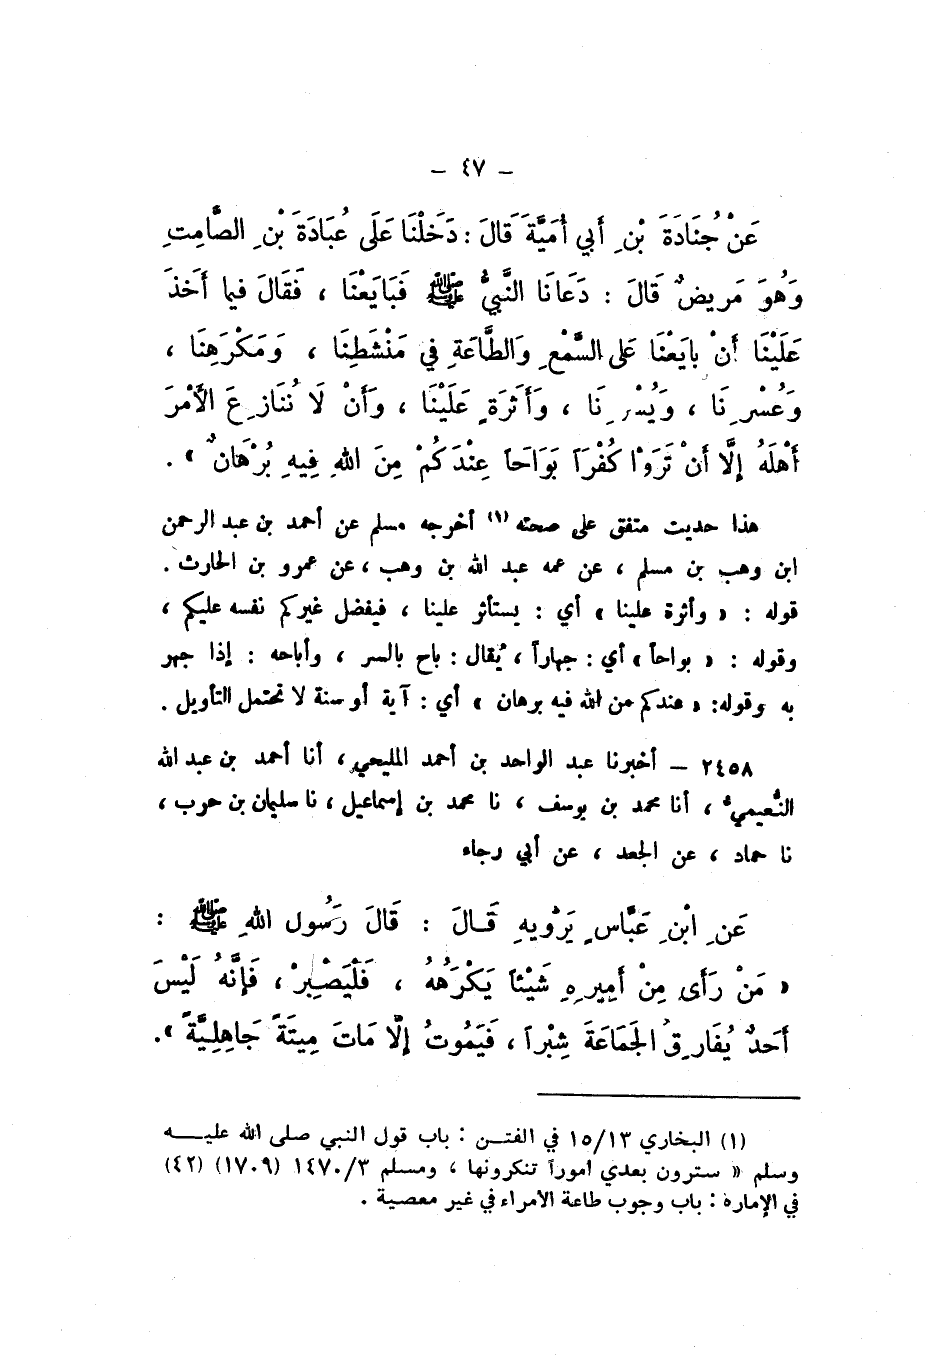 - ٤٧ -
عَنْ جُنَادَةَ بْنِ أَبي أُمَيَّةَ قَالَ : دَخَلْنَا عَلَى عُبَادَةَ بْنِ الصَّامِتِ
وَهُوَ مَريضٌ قَالَ : دَعَانَا النَّبيُّ ﷺ فَبَايَعْنَا ، فَقَالَ فيما أَخَذَ
عَلَيْنَا أنْ بايَعْنَا على السَّمْعِ وَالطَّاعَةِ في مَنْشَطِنَا ، وَمَكْرَهِنَا ،
وَعُسْرِنَا ، وَيُسْرِنَا ، وَأَثَرَةٍ عَلَيْنَا ، وَأَنْ لَا نُنَازِعَ الأَمْرَ
أَهْلَهُ إلَّا أَنْ تَرَوْا كُفْرَاً بَوَاحَاً عِنْدَكُمْ مِنَ اللهِ فِيهِ بُرْهَانٌ » .
هذا حديث متفق على صحته (١) أخرجه مسلم عن أحمد بن عبد الرحمن
ابن وهب بن مسلم ، عن عمه عبد الله بن وهب ، عن عمرو بن الحارث .
قوله : « وأثرة علينا » أي : يستأثر علينا ، فيفضل غيركم نفسه عليكم ،
وقوله : « بواحاً » أي : جهاراً ، يُقال : باح بالسر ، وأباحه : إذا جهر
به وقوله: « عندكم من الله فيه برهان » أي : آية أو سنة لا تحتمل التأويل .
٢٤٥٨ – أخبرنا عبد الواحد بن أحمد المليحي ، أنا أحمد بن عبد الله
النُّعيميُ ، أنا محمد بن يوسف ، نا محمد بن إسماعيل ، نا سليمان بن حرب ،
نا حماد ، عن الجعد ، عن أبي رجاء
عَنِ ابْنِ عَبَّاسٍ يَرْوِيهِ قَـالَ : قَالَ رَسُول اللهِ ﷺ :
« مَنْ رَأَى مِنْ أَمِيرِهِ شَيْئاً يَكْرَهُهُ ، فَلْيَصْبِرْ ، فَإنَّهُ لَيْسَ
أَحَدٌ يُفَارِقُ الجَمَاعَةَ شِبْراً ، فَيَمُوتُ إلَّا مَاتَ مِيتَةً جَاهِلِيَّةً » .
(١) البخاري ١٥/١٣ في الفتـن : باب قول النبي صلى الله عليـه
وسلم « سترون بعدي أموراً تنكرونها » ومسلم ١٤٧٠/٣ (١٧٠٩) (٤٢)
في الإمارة : باب وجوب طاعة الأمراء في غير معصية .